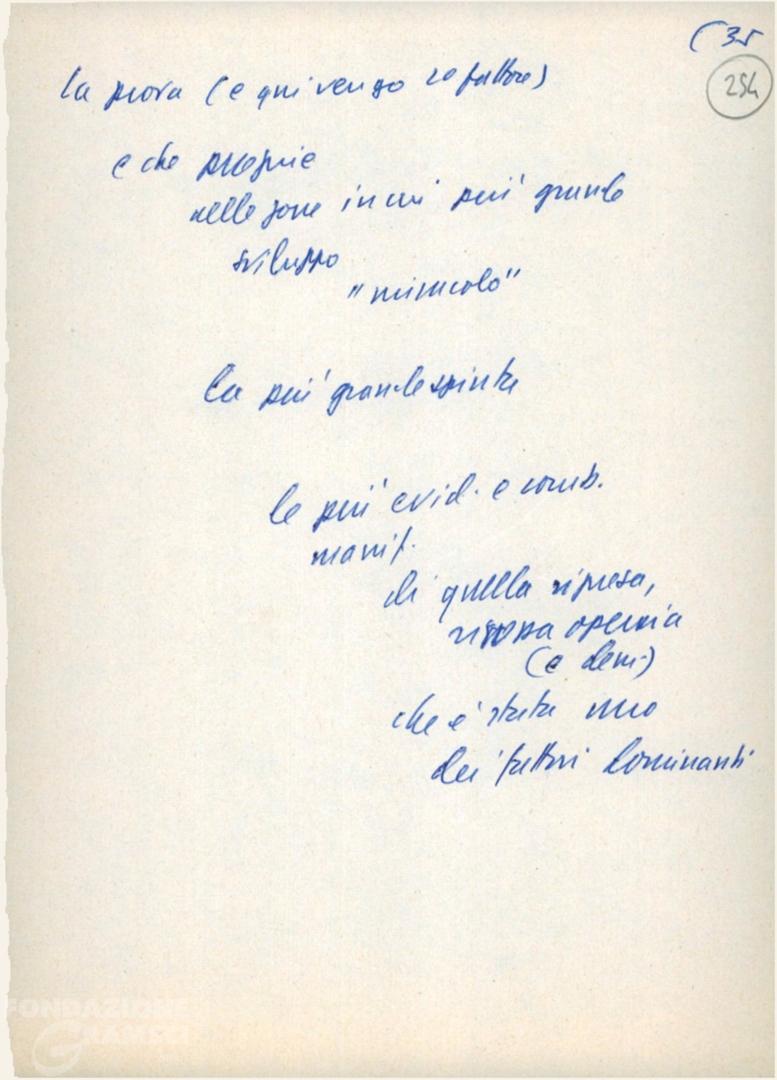 (35
254
la prova (e qui vengo 2º fattore)
e che proprie
nelle zone in cui più grande
sviluppo
"miracolo"
la più grande spinta
le più evid. e comb.
manif.
di quella ripresa,
riscossa operaia
(e dem.)
che e' stata uno
dei fattori dominanti
FONDAZIONE
GRAMSCI